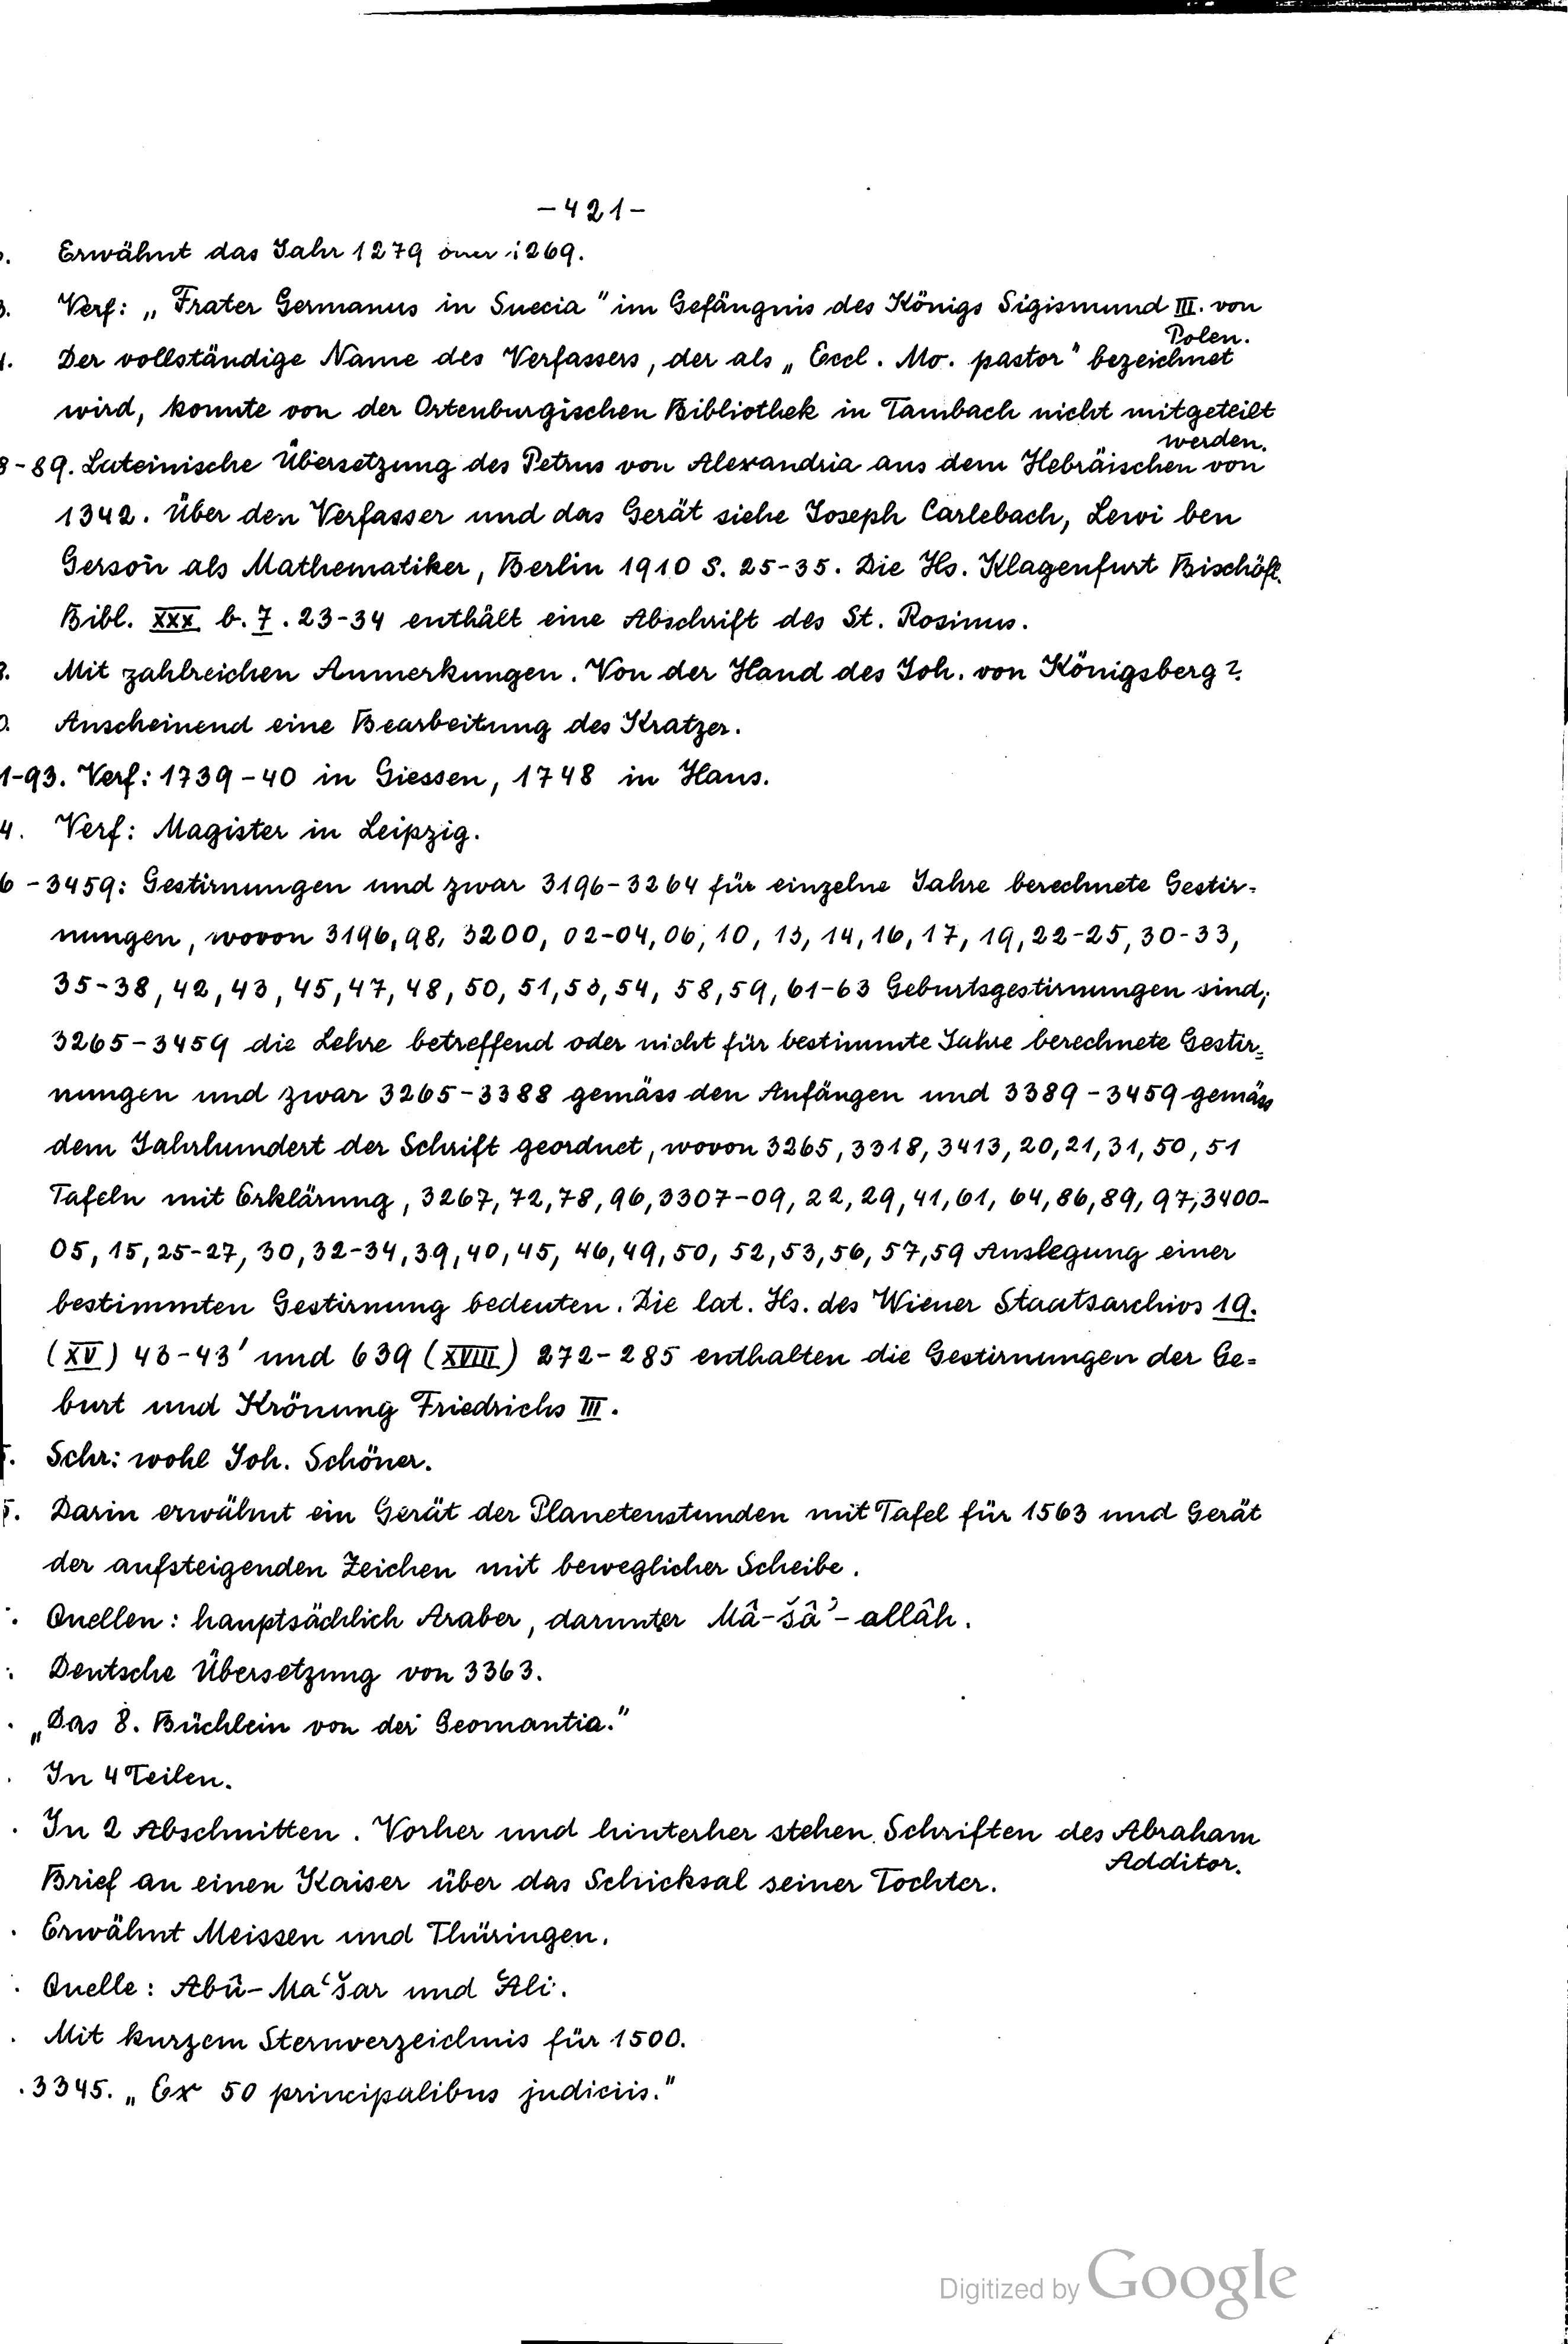 -421-
. Erwähnt das Jahr 1279 oder 1269.
3. Verf: „Frater Germanus in Suecia" im Gefängnis des Königs Sigismund III. von
Polen.
4. Der vollständige Name des Verfassers, der als „Eccl. Mo. pastor" bezeichnet
wird, konnte von der Ortenburgischen Bibliothek in Tambach nicht mitgeteilt
werden.
8-89. Lateinische Übersetzung des Petrus von Alexandria aus dem Hebräischen von
1342. Über den Verfasser und das Gerät siehe Joseph Carlebach, Lewi ben
Gerson als Mathematiker, Berlin 1910 S. 25-35. Die Hs. Klagenfurt Bischöfl.
Bibl. XXX b. 7. 23-34 enthält eine Abschrift des St. Rosinus.
. Mit zahlreichen Anmerkungen. Von der Hand des Joh. von Königsberg?
0. Anscheinend eine Bearbeitung des Kratzer.
1-93. Verf: 1739-40 in Giessen, 1748 in Haus.
4. Verf: Magister in Leipzig.
6 -3459: Gestirnungen und zwar 3196-3264 für einzelne Jahre berechnete Gestir=
nungen, wovon 3196, 98, 3200, 02-04, 06, 10, 13, 14, 16, 17, 19, 22-25, 30-33,
35-38, 42, 43, 45, 47, 48, 50, 51, 53, 54, 58, 59, 61-63 Geburtsgestirnungen sind;
3265-3459 die Lehre betreffend oder nicht für bestimmte Jahre berechnete Gestir=
nungen und zwar 3265-3388 gemäss den Anfängen und 3389-3459 gemäss
dem Jahrhundert der Schrift geordnet, wovon 3265, 3318, 3413, 20, 21, 31, 50, 51
Tafeln mit Erklärung, 3267, 72, 78, 96, 3307-09, 22, 29, 41, 61, 64, 86, 89, 97, 3400-
05, 15, 25-27, 30, 32-34, 39, 40, 45, 46, 49, 50, 52, 53, 56, 57, 59 Auslegung einer
bestimmten Gestirnung bedeuten. Die lat. Hs. des Wiener Staatsarchivs 19.
(XV) 43-43' und 639 (XVIII) 272-285 enthalten die Gestirnungen der Ge=
burt und Krönung Friedrichs III.
. Schr: wohl Joh. Schöner.
5. Darin erwähnt ein Gerät der Planetenstunden mit Tafel für 1563 und Gerät
der aufsteigenden Zeichen mit beweglicher Scheibe.
. Quellen: hauptsächlich Araber, darunter Mâ-šâʾ-allâh.
. Deutsche Übersetzung von 3363.
. „Das 8. Büchlein von der Geomantia."
. In 4 Teilen.
. In 2 Abschnitten. Vorher und hinterher stehen Schriften des Abraham
Additor.
Brief an einen Kaiser über das Schicksal seiner Tochter.
. Erwähnt Meissen und Thüringen.
. Quelle: Abû-Maʿšar und ʿAli.
. Mit kurzem Sternverzeichnis für 1500.
.3345. „Ex 50 principalibus judiciis."
Digitized by Google